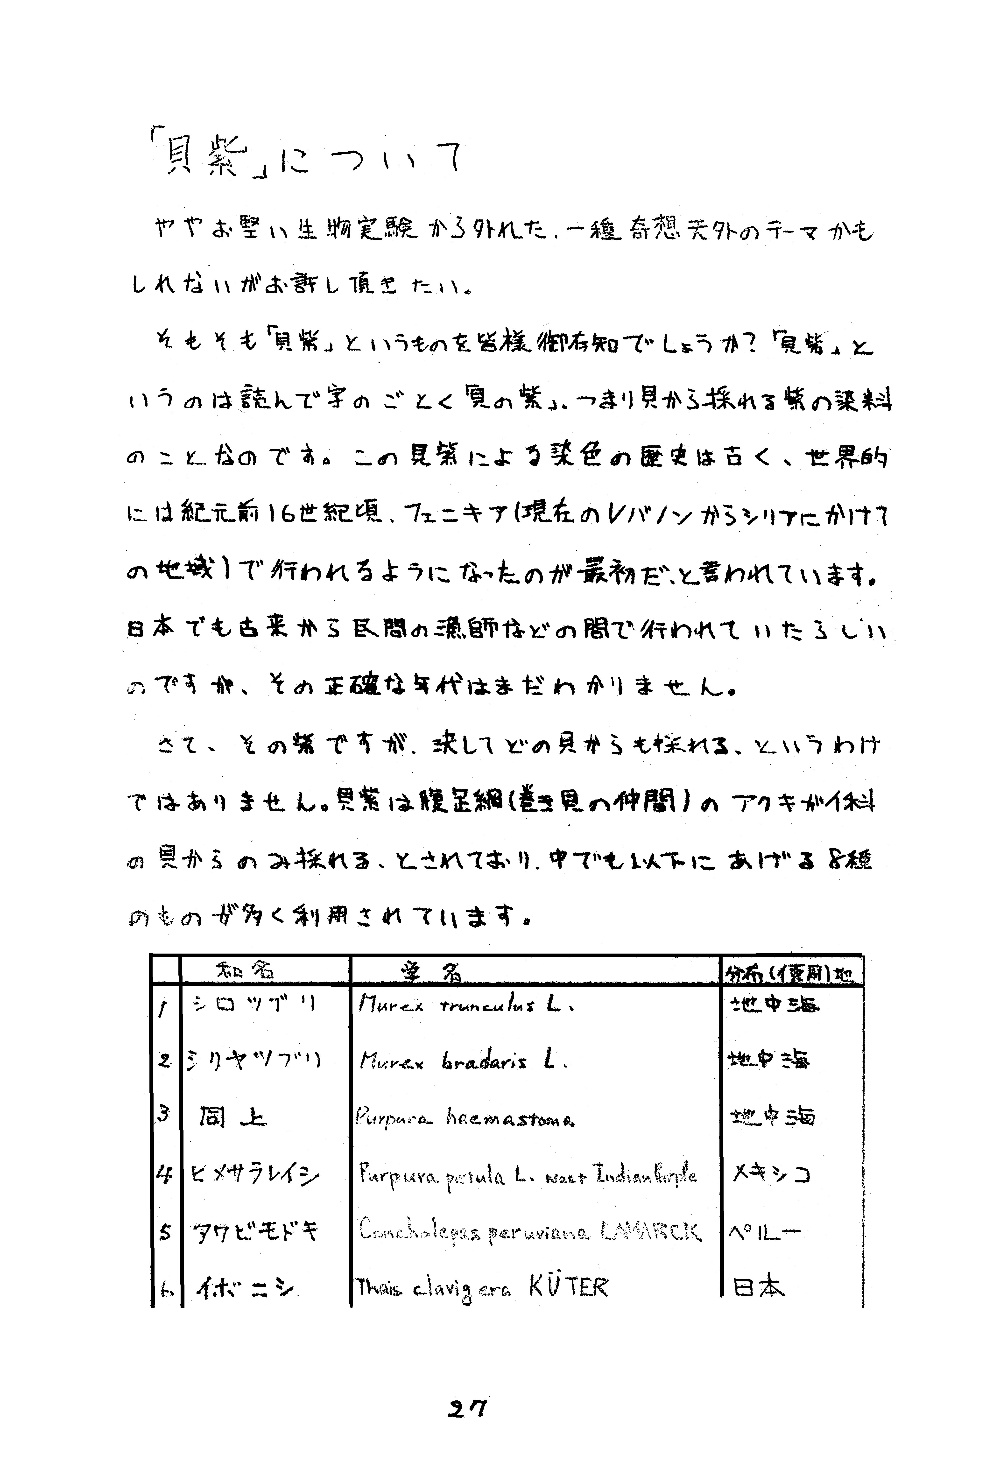 「貝紫」について
ややお堅い生物実験から外れた、一種奇想天外のテーマかも
しれないがお許し頂きたい。
そもそも「貝紫」というものを皆様御存知でしょうか?「貝紫」と
いうのは読んで字のごとく「貝の紫」、つまり貝から採れる紫の染料
のことなのです。この貝紫による染色の歴史は古く、世界的
には紀元前16世紀頃、フェニキア(現在のレバノンからシリアにかけて
の地域)で行われるようになったのが最初だ、と言われています。
日本でも古来から民間の漁師などの間で行われていたらしい
のですが、その正確な年代はまだわかりません。
さて、その紫ですが、決してどの貝からも採れる、というわけ
ではありません。貝紫は腹足綱(巻き貝の仲間)のアクキガイ科
の貝からのみ採れる、とされており、中でも以下にあげる8種
のものが多く利用されています。
和名 学名 分布(使用)地
1 シロツブリ Murex trunculus L. 地中海
2 シリヤツブリ Murex bradaris L. 地中海
3 同上 Purpura haemastoma 地中海
4 ヒメサラレイシ Purpura patula L. west Indian Purple メキシコ
5 アワビモドキ Concholepas peruviana LAMARCK ペルー
6 イボニシ Thais clavigera KÜTER 日本
27